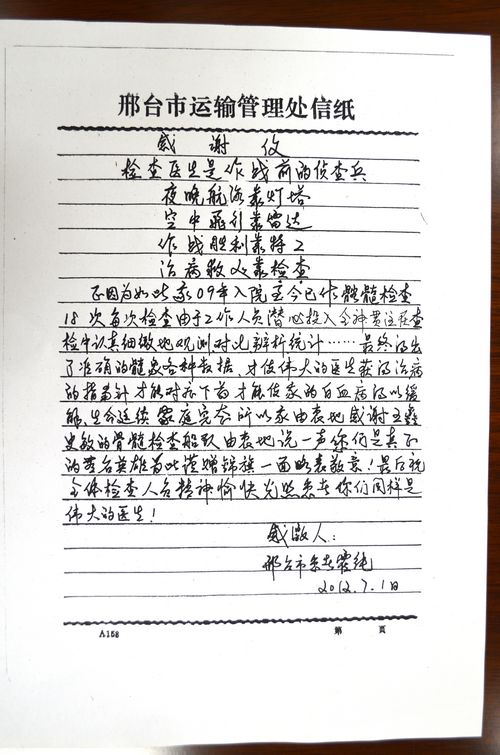 邢台市运输管理处信纸
感谢信
检查医生是作战前的侦查兵
夜晚航海靠灯塔
空中飞行靠雷达
作战胜利靠特工
治病救人靠检查
正因为如此我09年入院至今已作髓检查
18次每次检查由于工作人员潜心投入全神贯注在查
检中认真细微地观测对比辨析统计……最终得出
了准确的髓数各种数据，才使伟大的医生获得治病
的指南针才能对症下药才能使我的白血病得以缓
解，生命延续家庭完好所以我由衷地感谢
的骨髓检查由衷地说一声你们是真正
的英雄为此谨赠锦旗一面略表敬意！最后祝
全体检查人员精神愉快光照你们同样是
伟大的医生！
感激人：
邢台市
2012.7.1日
A158
第 页